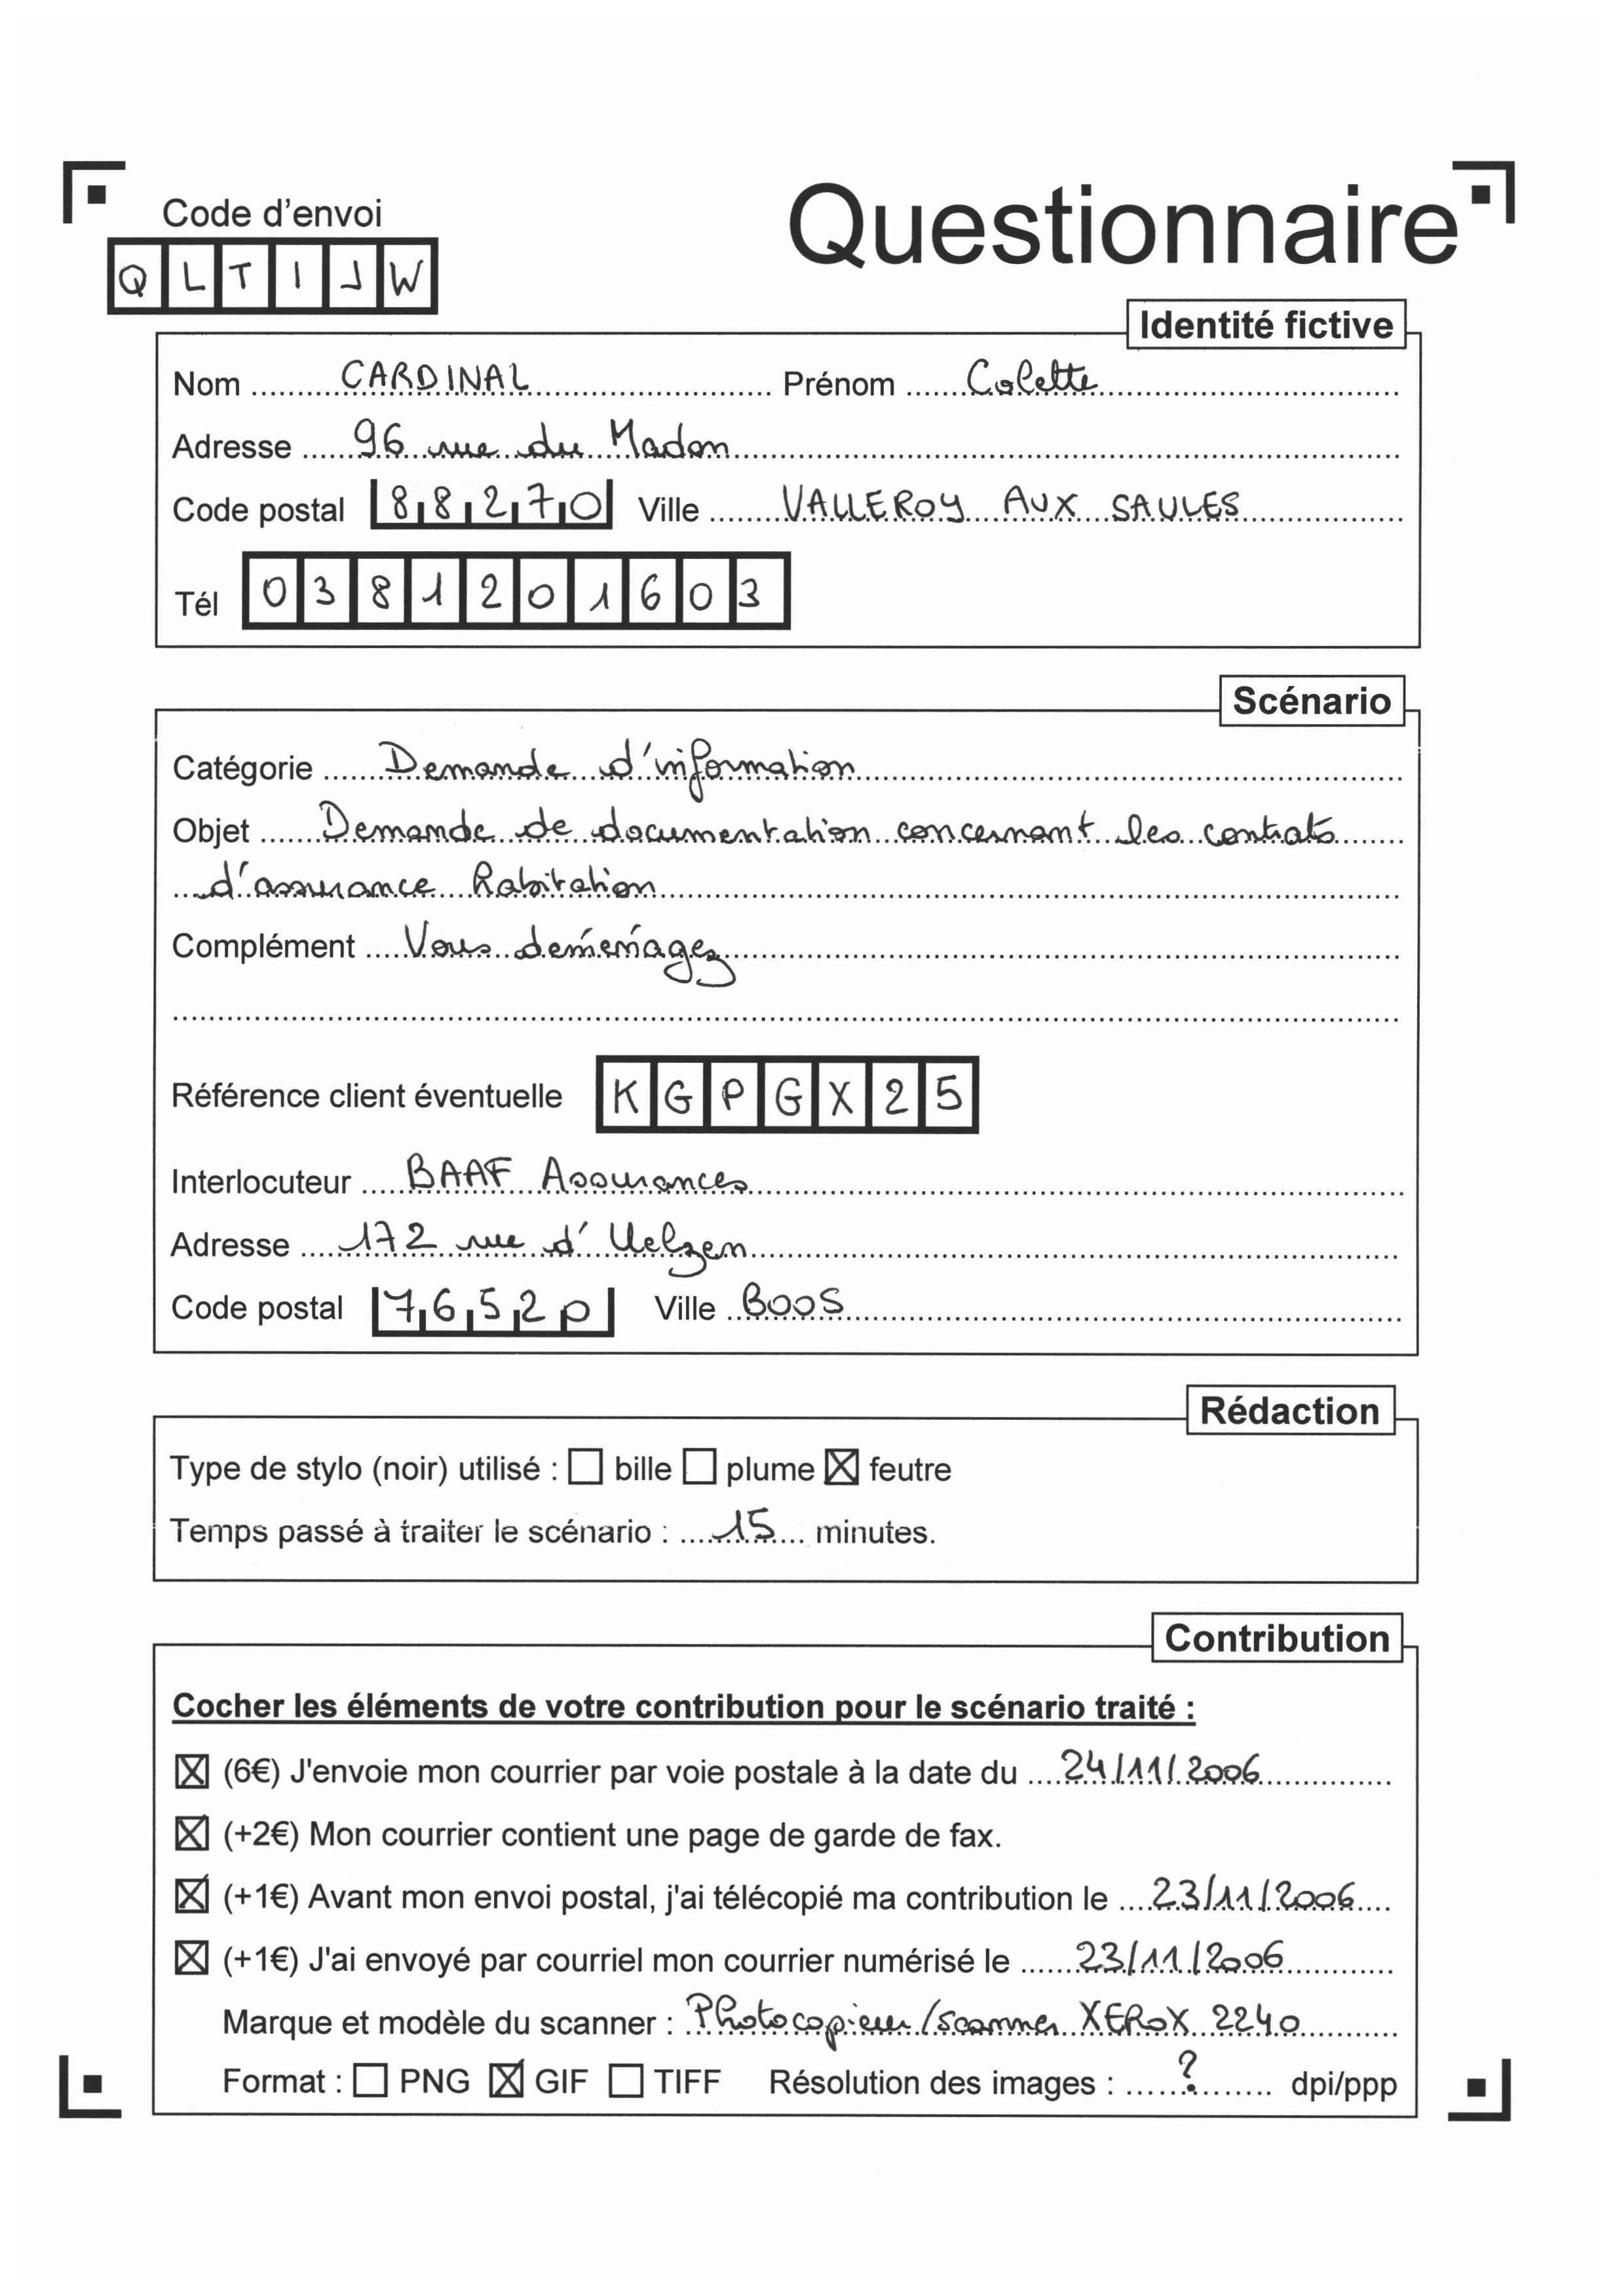 Questionnaire
Code d'envoi
QLTIJW
Identité fictive
Nom CARDINAL Prénom Colette
Adresse 96 rue du Madon
Code postal 88270 Ville VALLEROY AUX SAULES
Tél 0381201603
Scénario
Catégorie Demande d'information
Objet Demande de documentation concernant les contrats
d'assurance habitation
Complément Vous déménagez
Référence client éventuelle KGPGX25
Interlocuteur BAAF Assurances
Adresse 172 rue d'Uelzen
Code postal 76520 Ville BOOS
Rédaction
Type de stylo (noir) utilisé : ☐ bille ☐ plume ☒ feutre
Temps passé à traiter le scénario : 15 minutes.
Contribution
Cocher les éléments de votre contribution pour le scénario traité :
☒ (6€) J'envoie mon courrier par voie postale à la date du 24/11/2006
☒ (+2€) Mon courrier contient une page de garde de fax.
☒ (+1€) Avant mon envoi postal, j'ai télécopié ma contribution le 23/11/2006
☒ (+1€) J'ai envoyé par courriel mon courrier numérisé le 23/11/2006
Marque et modèle du scanner : Photocopieur/scanner XEROX 2240
Format : ☐ PNG ☒ GIF ☐ TIFF Résolution des images : ? dpi/ppp